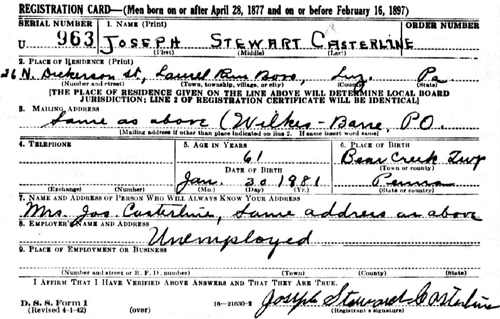 REGISTRATION CARD—(Men born on or after April 28, 1877 and on or before February 16, 1897)
SERIAL NUMBER 1. NAME (Print) ORDER NUMBER
U 963 JOSEPH STEWART CASTERLINE
(First) (Middle) (Last)
2. PLACE OF RESIDENCE (Print)
26 N. Dickerson St, Laurel Run Boro, Luz. Pa
(Number and street) (Town, township, village, or city) (County) (State)
[THE PLACE OF RESIDENCE GIVEN ON THE LINE ABOVE WILL DETERMINE LOCAL BOARD
JURISDICTION; LINE 2 OF REGISTRATION CERTIFICATE WILL BE IDENTICAL]
3. MAILING ADDRESS
Same as above (Wilkes-Barre, P.O.
[Mailing address if other than place indicated on line 2. If same insert word same]
4. TELEPHONE 5. AGE IN YEARS 6. PLACE OF BIRTH
61 Bear Creek Twp
DATE OF BIRTH (Town or county)
Jan. 30 1981 Penna
(Exchange) (Number) (Mo.) (Day) (Yr.) (State or country)
7. NAME AND ADDRESS OF PERSON WHO WILL ALWAYS KNOW YOUR ADDRESS
Mrs. Jos. Casterline, same address as above
8. EMPLOYER'S NAME AND ADDRESS
Unemployed
9. PLACE OF EMPLOYMENT OR BUSINESS
(Number and street or R. F. D. number) (Town) (County) (State)
I AFFIRM THAT I HAVE VERIFIED ABOVE ANSWERS AND THAT THEY ARE TRUE.
D. S. S. Form 1
(Revised 4-1-42) (over) 16—21630-2 Joseph Stewart Casterline
(Registrant's signature)